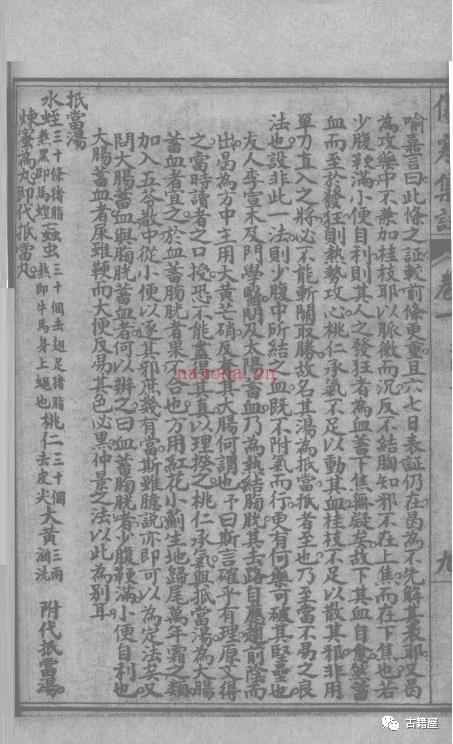 傷寒集註 卷一 九
喻嘉言曰此條之証較前條更重且六七日表証仍在曷為不先解其表耶又曷
為攻藥中不兼加桂枝耶以脈微而沉反不結胸知邪不在上焦而在下焦也若
少腹鞕滿小便自利則其人之發狂者為血蓄下焦無疑矣故下其血自愈然蓄
血而至於發狂則熱勢攻心桃仁承氣不足以動其血桂枝不足以散其邪非用
單刀直入之將必不能斬關取勝故名其湯為抵當抵者至也乃至當不易之良
法也設非此一法則少腹中所結之血既不附氣而行更有何藥可破其堅壘也
友人李萱木及門學醫問及太陽蓄血乃為熱結膀胱其去路自應趨前陰而
出曷為方中主用大黃芒硝反令其大腸何謂也予曰斯言確乎有理原文得
之當時讀者之口授恐不能盡得其真以理揆之桃仁承氣與抵當湯為大腸
蓄血者宜之於血蓄膀胱者果不合也方用紅花小薊生地歸尾萬年霜之類
加入五苓散中從小便以逐其邪庶幾有當斯雖臆說亦即可以為定法矣又
問大腸蓄血與膀胱蓄血者何以辨之曰血蓄膀胱者少腹鞕滿小便自利也
大腸蓄血者屎雖鞕而大便反易其色必黑仲景之法以此為別耳
抵當湯
水蛭三十條猪脂熬黑即馬蝗䖟虫三十個去翅足猪脂熬即牛馬身上蝇也桃仁三十個去皮尖大黃三兩酒洗 附代抵當湯
煉蜜為丸即代抵當丸
nayona.cn
古籍屋